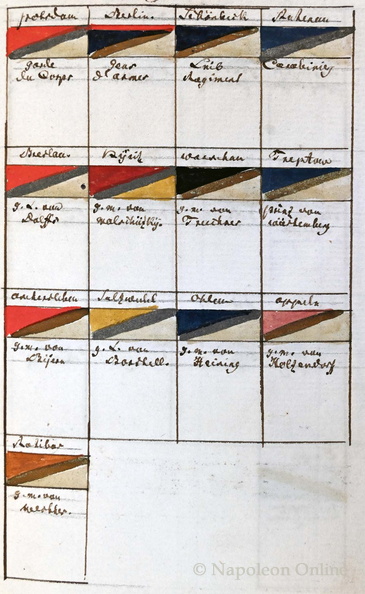 Potsdam Berlin Schönbeck Rathenau
garde du Corps
gens d'armes
Leib Regiment
Carabiniers
Breslau Züllz Warschau Treptow
g. L. von Dolffs
g. m. von
g. m. von
Prinz von Würtemberg
Aschersleben Salzwedel Ohlau Oppeln
g. m. von Byern
g. L. von Borstell
g. m. von Heising
g. m. von Holzendorff
Ratibor
g. m. von Werther
© Napoleon Online